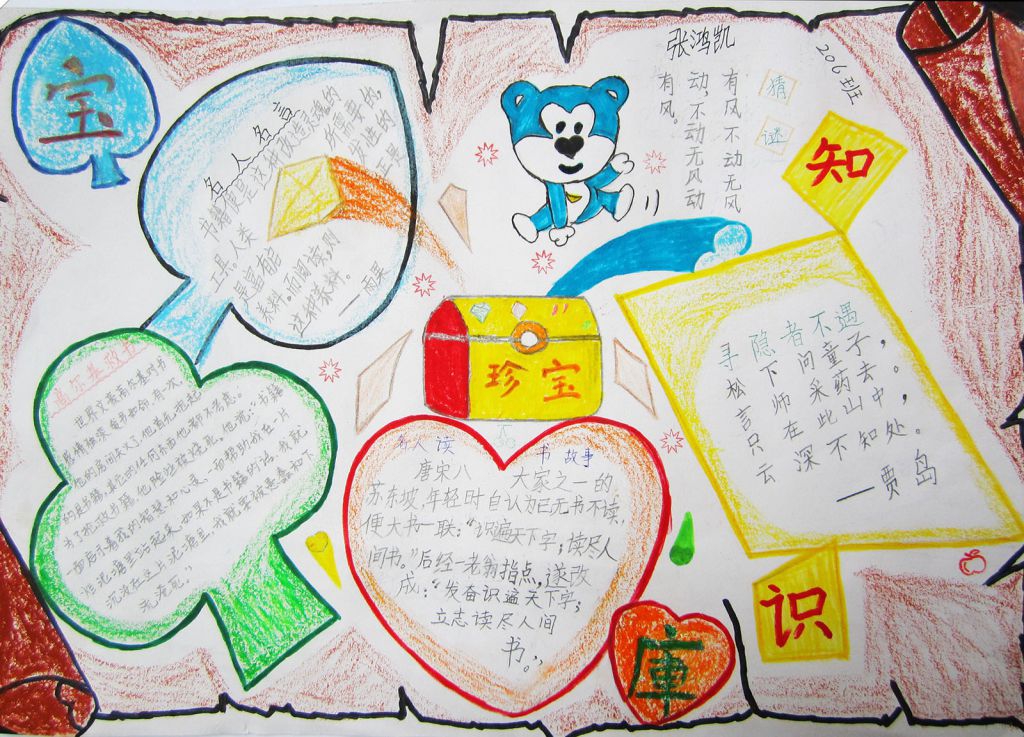 宝
名人名言
书籍便是这种改造灵魂的
工具。人类所需要的,
是富有启发性的
养料。而阅读,则正是
这种养料。
——雨果
张鸿凯
206班
猜
谜
有风不动无风
动,不动无风动
有风。
知
寻隐者不遇
松下问童子,
言师采药去。
只在此山中,
云深不知处。
——贾岛
识
珍宝
高尔基救书
世界文豪高尔基对书
感情独深,爱书如命。有一次,
他的房间失火了,他首先抱起
的是书籍,其他的任何东西他都不考虑。
为了抢救书籍,他险些被烧死。他说:“书籍
一面启示着我的智慧和心灵,一面帮助我在一片
烂泥潭里站起来,如果不是书籍的话,我就
沉没在这片泥潭里,我就要被愚蠢和下
流淹死。”
名人读书故事
唐宋八大家之一的
苏东坡,年轻时自认为已无书不读,
便大书一联:“识遍天下字;读尽人
间书。”后经一老翁指点,遂改
成:“发奋识遍天下字;
立志读尽人间
书。”
庫